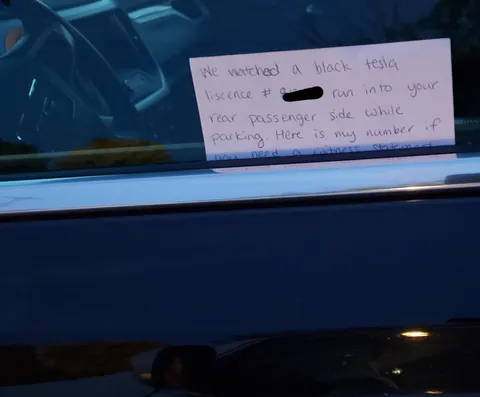 We watched a black tesla
liscence # run into your
rear passenger side while
parking. Here is my number if
you need a witness statement